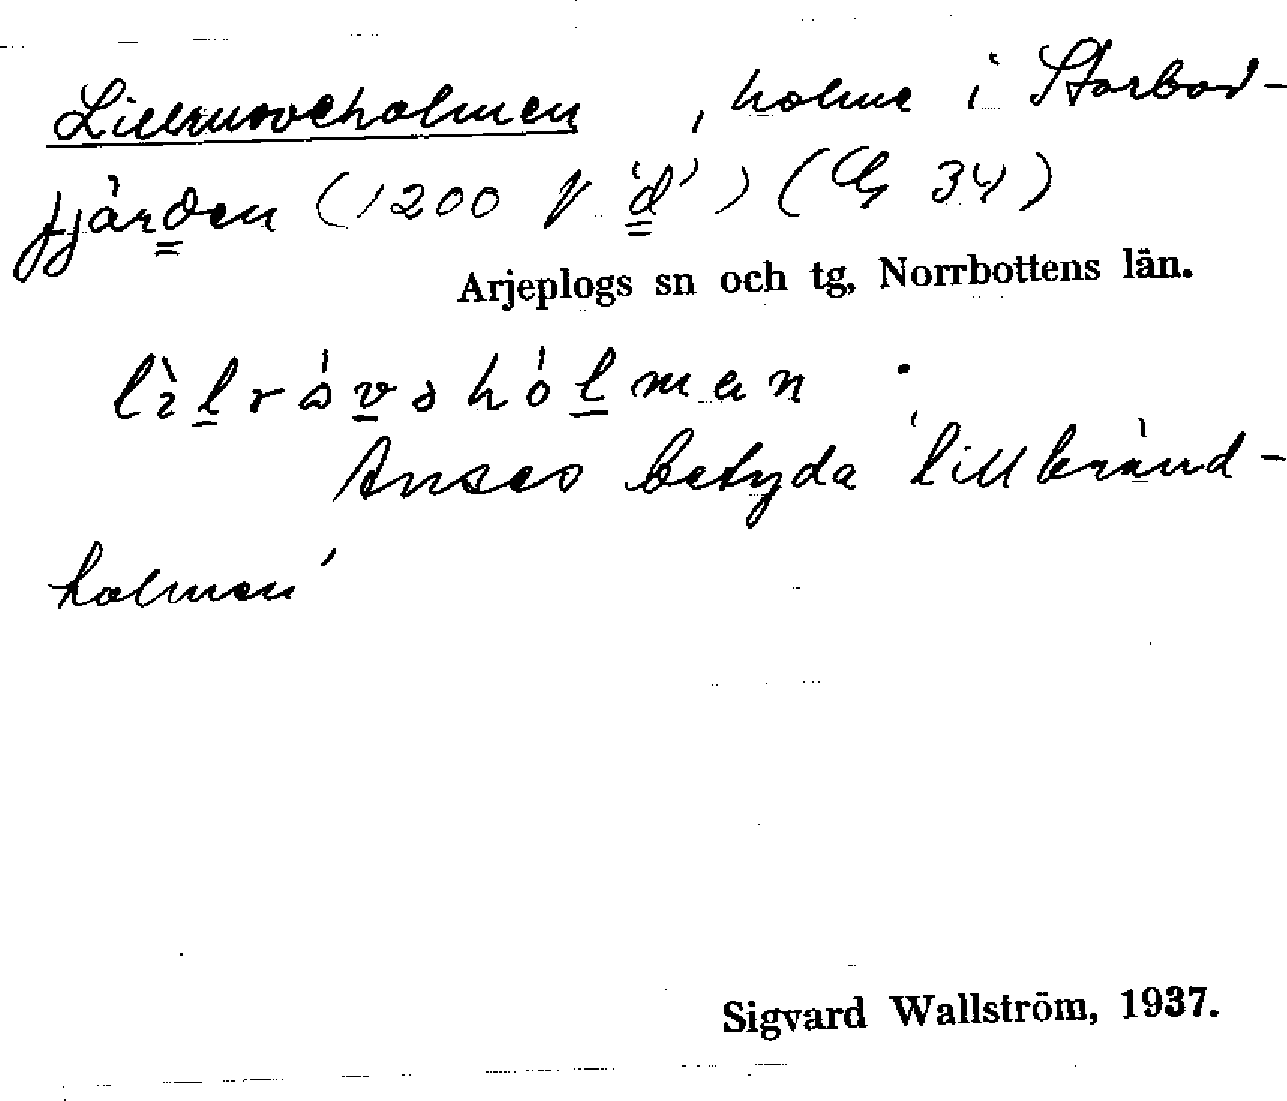 Lillruoveholmen , holme i Storbod-
fjärden (1200 V 'd') (G 34)
Arjeplogs sn och tg, Norrbottens län.
Anses betyda 'Lillbränd-
holmen'
Sigvard Wallström, 1937.